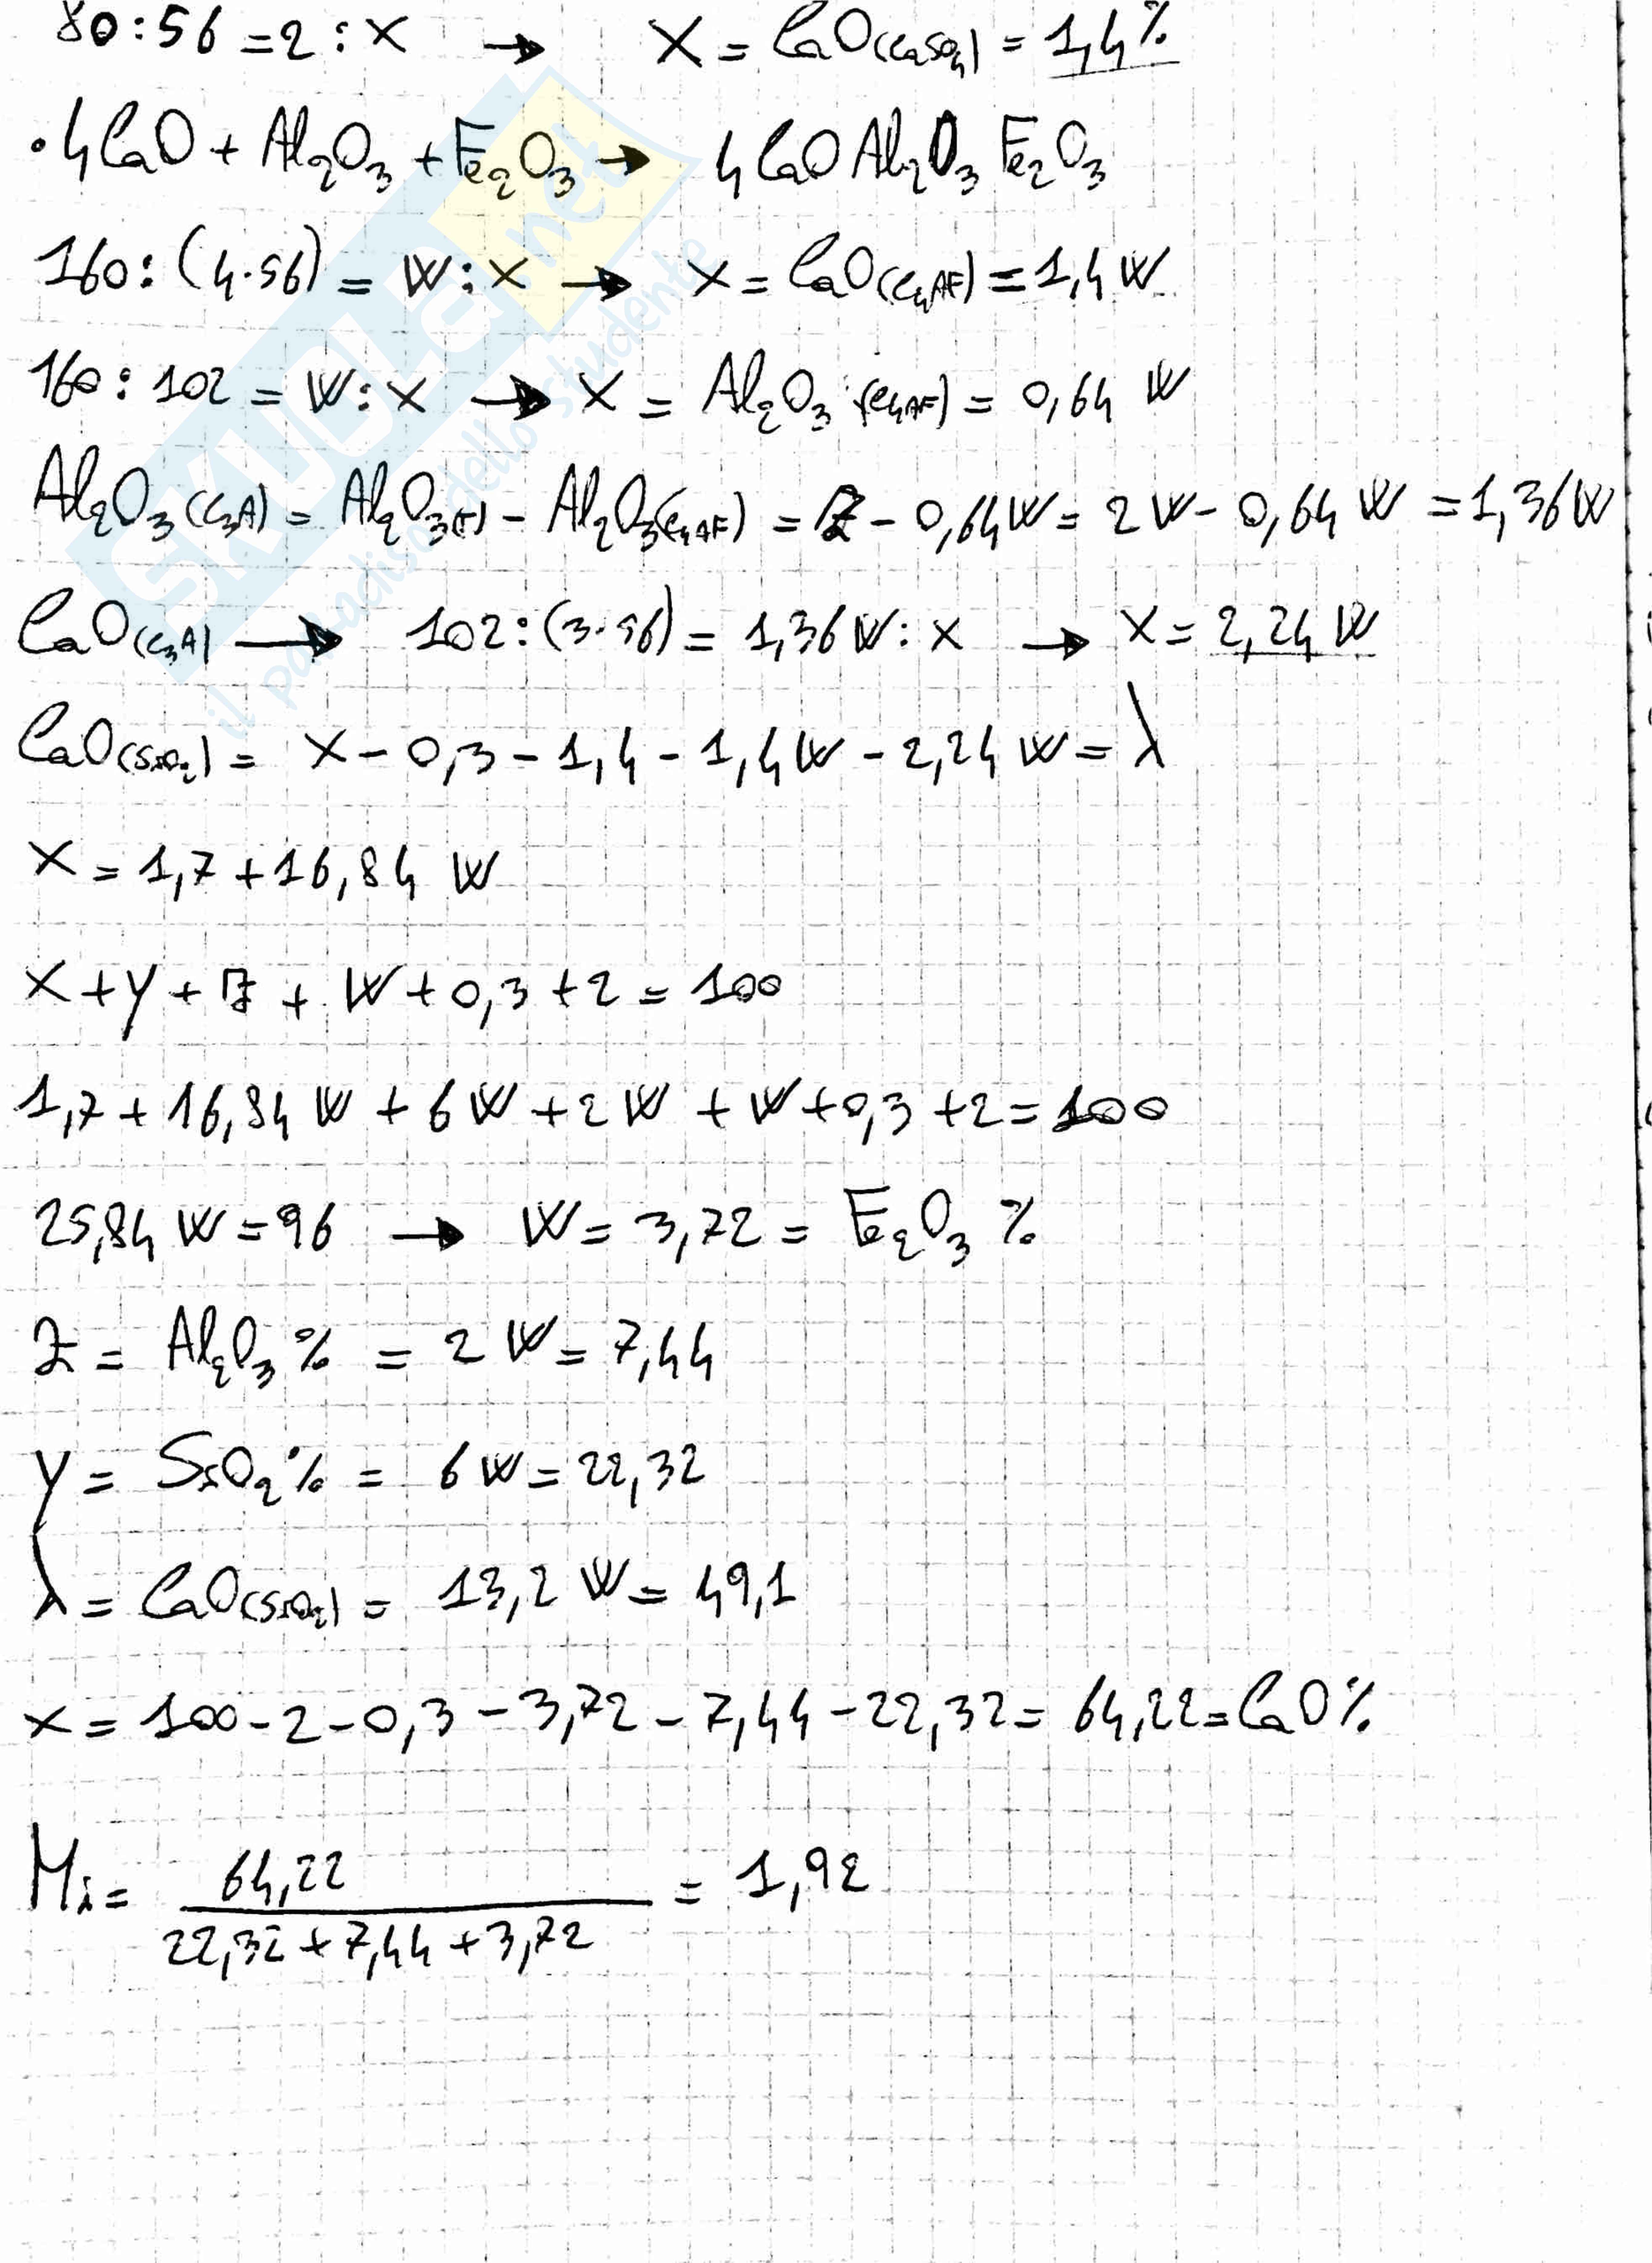 80:56=2:x → x = CaO(CaSO4) = 1,4%
• 4CaO + Al2O3 + Fe2O3 → 4CaO Al2O3 Fe2O3
160:(4·56) = W:x → x = CaO(C4AF) = 1,4 W
160:102 = W:x → x = Al2O3 (C4AF) = 0,64 W
Al2O3 (C3A) = Al2O3(t) - Al2O3(C4AF) = Z - 0,64W = 2W - 0,64 W = 1,36W
CaO(C3A) → 102:(3·56) = 1,36W:x → x = 2,24 W
CaO(SiO2) = x - 0,3 - 1,4 - 1,4W - 2,24 W = λ
x = 1,7 + 16,84 W
x + y + Z + W + 0,3 + 2 = 100
1,7 + 16,84 W + 6W + 2W + W + 0,3 + 2 = 100
25,84 W = 96 → W = 3,72 = Fe2O3 %
Z = Al2O3 % = 2 W = 7,44
y = SiO2 % = 6 W = 22,32
λ = CaO(SiO2) = 13,2 W = 49,1
x = 100 - 2 - 0,3 - 3,72 - 7,44 - 22,32 = 64,22 = CaO %
Mi = 64,22 / 22,32 + 7,44 + 3,72 = 1,92
SKUOLA.net
il paradiso dello studente